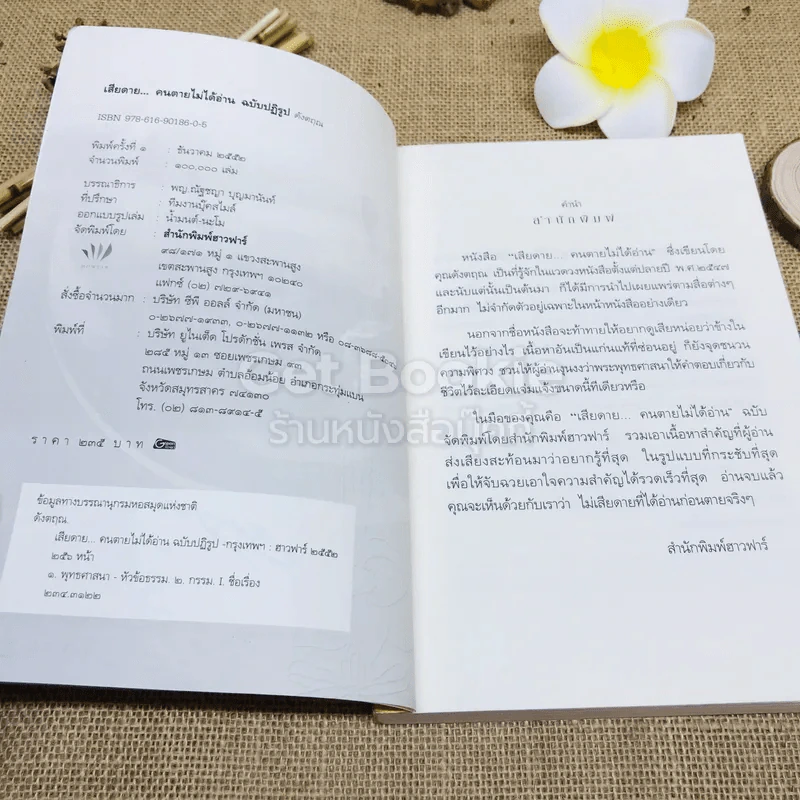 เสียดาย... คนตายไม่ได้อ่าน ฉบับปฏิรูป ดังตฤณ
ISBN 978-616-90186-0-5
พิมพ์ครั้งที่ ๑ : ธันวาคม ๒๕๕๒
จำนวนพิมพ์ : ๑๐๐,๐๐๐ เล่ม
บรรณาธิการ : พญ.ณัฐชญา บุญมานันท์
ที่ปรึกษา : ทีมงานบุ๊คสไมล์
ออกแบบรูปเล่ม : น้ำมนต์-นะโม
จัดพิมพ์โดย : สำนักพิมพ์ฮาวฟาร์
๙๘/๑๗๑ หมู่ ๑ แขวงสะพานสูง
เขตสะพานสูง กรุงเทพฯ ๑๐๒๔๐
แฟกซ์ (๐๒) ๗๒๙-๖๙๔๑
สั่งซื้อจำนวนมาก : บริษัท ซีพี ออลล์ จำกัด (มหาชน)
๐-๒๖๗๗-๑๙๓๓, ๐-๒๖๗๗-๑๑๓๒ หรือ
พิมพ์ที่ : บริษัท ยูไนเต็ด โปรดักชั่น เพรส จำกัด
๒๘๕ หมู่ ๑๓ ซอยเพชรเกษม ๙๑
ถนนเพชรเกษม ตำบลอ้อมน้อย อำเภอกระทุ่มแบน
จังหวัดสมุทรสาคร ๗๔๑๓๐
โทร. (๐๒) ๘๑๓-๘๙๑๔-๕
ราคา ๒๓๕ บาท
ข้อมูลทางบรรณานุกรมหอสมุดแห่งชาติ
ดังตฤณ.
เสียดาย... คนตายไม่ได้อ่าน ฉบับปฏิรูป -กรุงเทพฯ : ฮาวฟาร์ ๒๕๕๒
๒๕๖ หน้า
๑. พุทธศาสนา - หัวข้อธรรม. ๒. กรรม. I. ชื่อเรื่อง
๒๙๔.๓๑๒๒
คำนำ
สำนักพิมพ์
หนังสือ “เสียดาย... คนตายไม่ได้อ่าน” ซึ่งเขียนโดย
คุณดังตฤณ เป็นที่รู้จักในแวดวงหนังสือตั้งแต่ปลายปี พ.ศ.๒๕๔๗
และนับแต่นั้นเป็นต้นมา ก็ได้มีการนำไปเผยแพร่ตามสื่อต่างๆ
อีกมาก ไม่จำกัดตัวอยู่เฉพาะในหน้าหนังสืออย่างเดียว
นอกจากชื่อหนังสือจะท้าทายให้อยากดูเสียหน่อยว่าข้างใน
เขียนไว้อย่างไร เนื้อหาอันเป็นแก่นแท้ที่ซ่อนอยู่ ก็ยังจุดชนวน
ความพิศวง ชวนให้ผู้อ่านงุนงงว่าพระพุทธศาสนาให้คำตอบเกี่ยวกับ
ชีวิตไว้ละเอียดแจ่มแจ้งขนาดนี้ทีเดียวหรือ
ในมือของคุณคือ “เสียดาย... คนตายไม่ได้อ่าน” ฉบับ
จัดพิมพ์โดยสำนักพิมพ์ฮาวฟาร์ รวมเอาเนื้อหาสำคัญที่ผู้อ่าน
ส่งเสียงสะท้อนมาว่าอยากรู้ที่สุด ในรูปแบบที่กระชับที่สุด
เพื่อให้จับฉวยเอาใจความสำคัญได้รวดเร็วที่สุด อ่านจบแล้ว
คุณจะเห็นด้วยกับเราว่า ไม่เสียดายที่ได้อ่านก่อนตายจริงๆ
สำนักพิมพ์ฮาวฟาร์